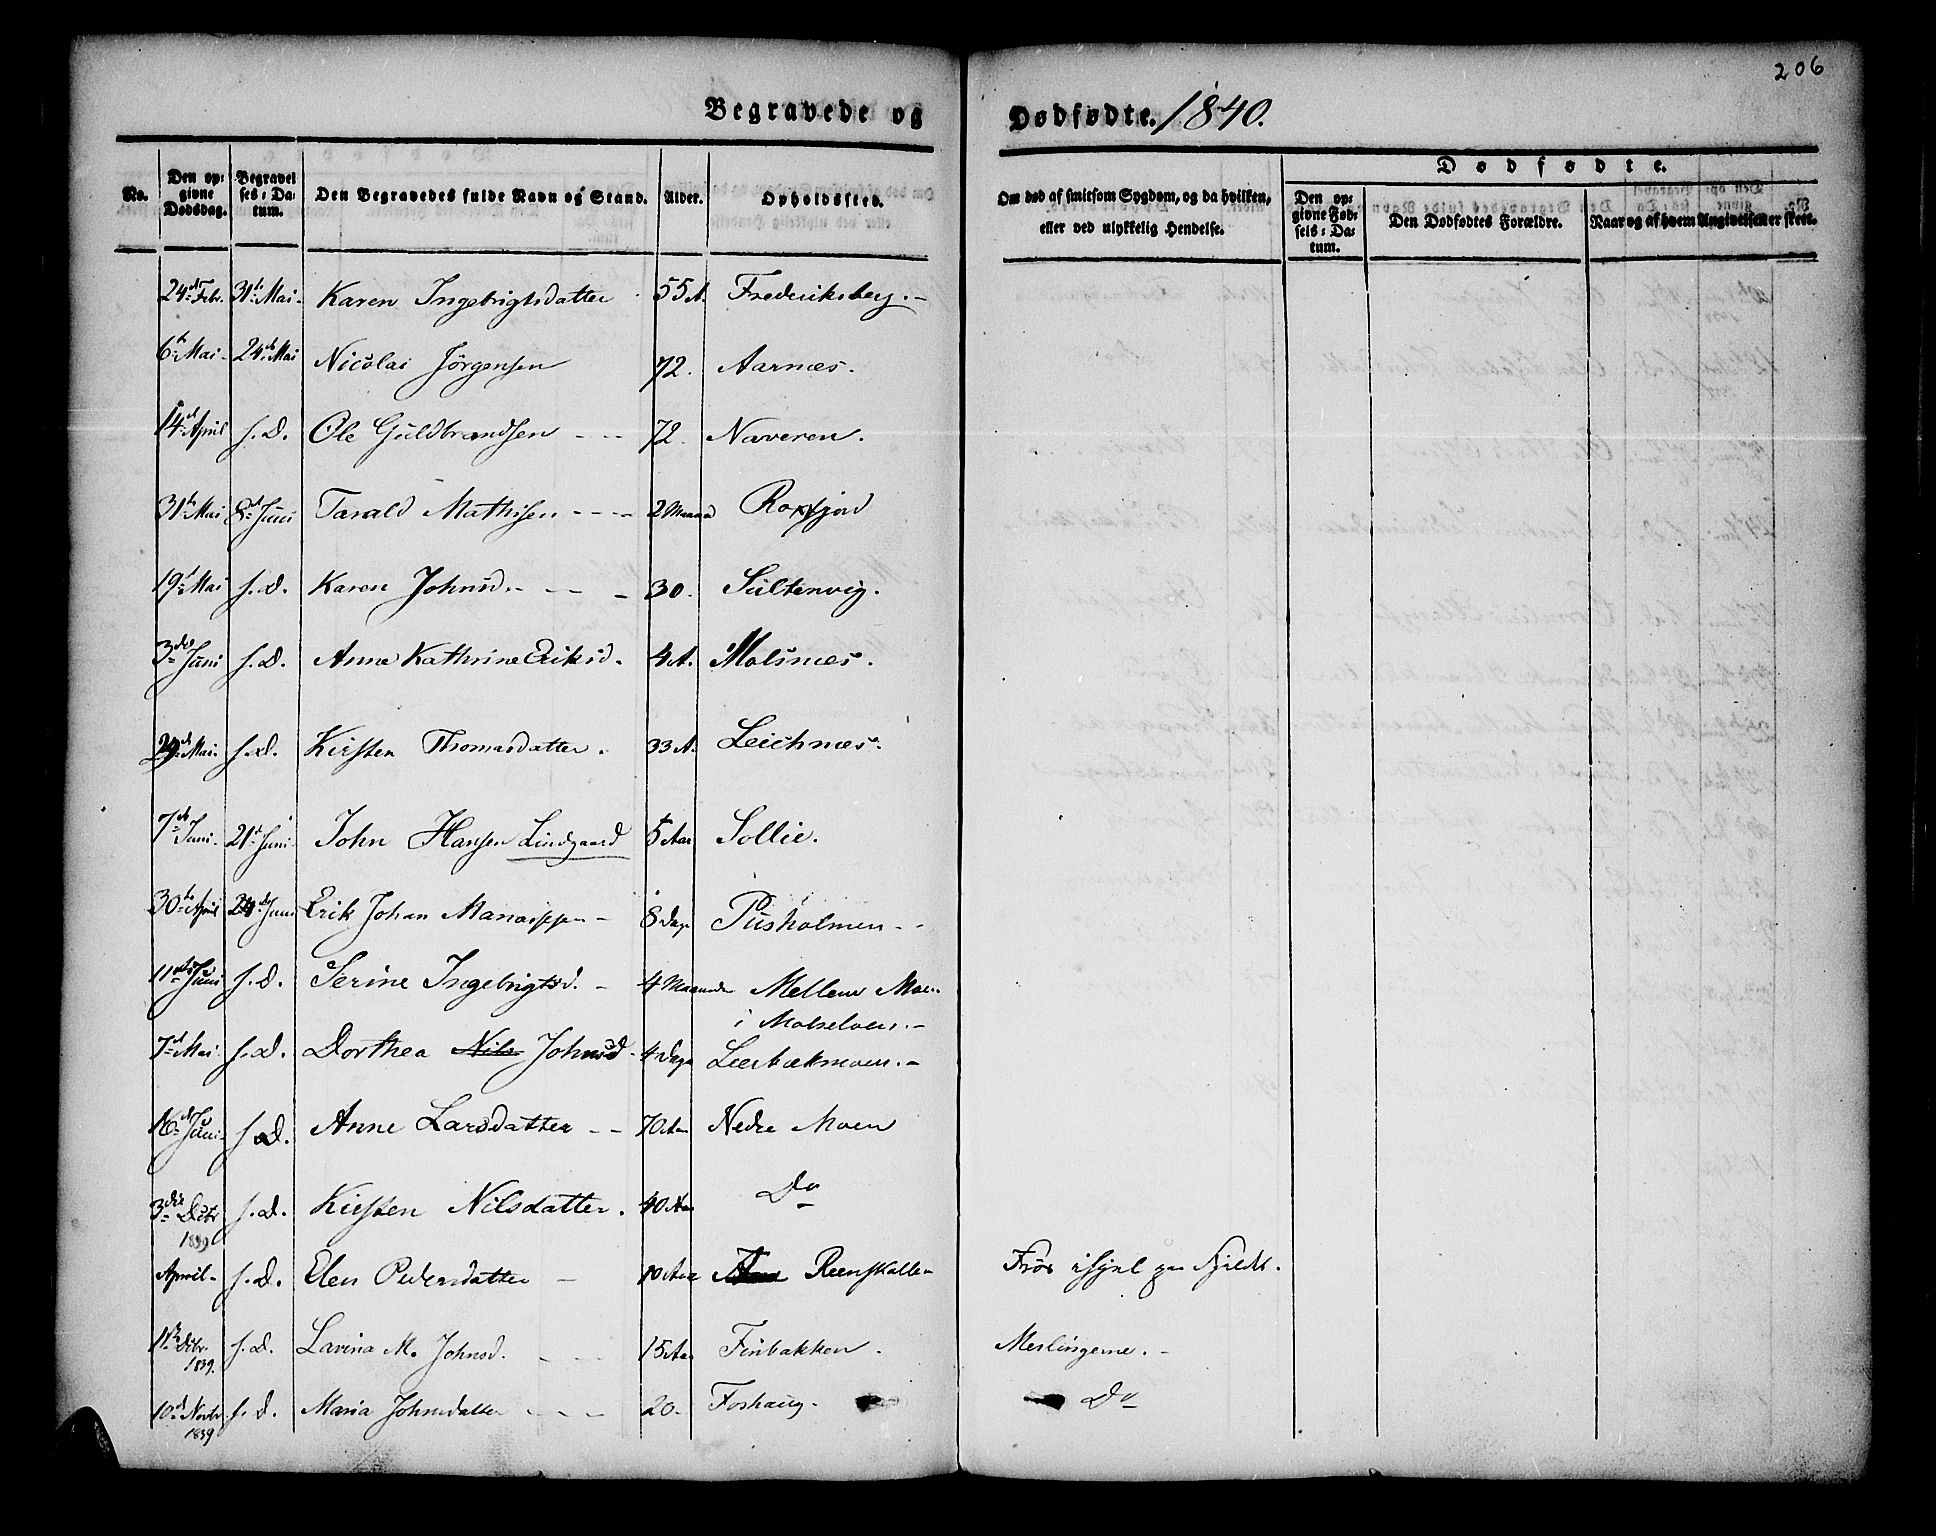 206
Begravede og Dødfødte. 1840.
No. | Den opgivne Dødsdag. | Begravelses-Datum. | Den Begravedes fulde Navn og Stand. | Alder. | Opholdssted. | Om død af smitsom Sygdom, og da hvilken, eller ved ulykkelig Hendelse. | Dødfødte. | Den opgivne Fødsels-Datum. | Den Dødfødtes Forældre. | Naar og af hvem Angivelsen er skeet.
24de Febr. 31te Mai Karen Ingebrigtsdatter 55 A. Frederiksberg.
6te Mai 24de Mai Nicolai Jörgensen 72. Aarnæs.
14de April s. D. Ole Guldbrandsen 72. Naveren.
31te Mai 8de Juni Tarald Mathisen 2 Maaned
19de Mai s. D. Karen Johnsd. 30. Sultenvig.
3die Juni s. D. Anne Kathrine Eriksd. 4 A. Molsnæs.
Mai. s. D. Kirsten Thomasdatter. 33 A. Leichnæs.
7de Juni. 21de Juni. John Hansen Lindgaard 5 Aar Sollie.
30te April Juni Erik Johan 8 Dage Pusholmen
11te Juni s. D. Serine Ingebrigtsd. 4 Maaneder Mellem Moen
i Molselven.
7de Mai s. D. Dorthea Nils Johnsd. 4 Dage Leerbækmoen.
16de Juni s. D. Anne Larsdatter 70 Aar Nedre Moen
3die Debr 1839 s. D. Kirsten Nilsdatter. 40 Aar Do
April s. D. Elen Pedersdatter 10 Aar Reenskallen Frös ihjel paa Fjeldt.
11te Debr. 1839. s. D. Lavina M. Johnsd. 15 Aar Finbakken. Meslingerne.
10de Novbr 1839 s. D. Maria Johnsdatter 20. Foshaug. Do